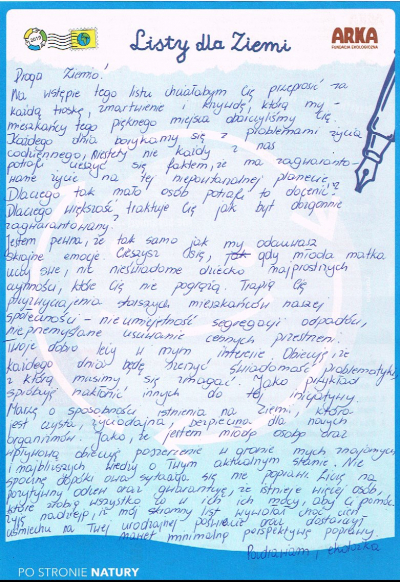 2019
Listy dla Ziemi
ARKA
FUNDACJA EKOLOGICZNA
Droga Ziemio!
Na wstępie tego listu chciałabym Cię przeprosić za
każdą troskę, zmartwienie i krzywdę, którą my -
mieszkańcy tego pięknego miejsca obciążyliśmy Cię.
Każdego dnia borykamy się z problemami życia
codziennego, niestety nie każdy z nas
potrafi cieszyć się faktem, że ma zagwaranto-
wane życie na tej niepowtarzalnej planecie.
Dlaczego tak mało osób potrafi to docenić?
Dlaczego większość traktuje Cię jak byt dozgonnie
zagwarantowany?
Jestem pewna, że tak samo jak my odczuwasz
skrajne emocje. Cieszysz się, gdy młoda matka
uczy swe, nic nieświadome dziecko najprostszych
czynności, które Cię nie pogrążą. Trapią Cię
przyzwyczajenia starszych mieszkańców naszej
społeczności - nieumiejętność segregacji odpadów,
nieprzemyślane usuwanie cennych przestrzeni.
Twoje dobro leży w mym interesie. Obiecuję, że
każdego dnia będę szerzyć świadomość problematyki,
z którą musimy się zmagać. Jako przykład
spróbuję nakłonić innych do tej inicjatywy.
Mówię o sposobności istnienia na Ziemi, która
jest czysta, życiodajna, bezpieczna dla nowych
organizmów. Jako, że jestem młodą osobą oraz
wpływową obiecuję poszerzenie w gronie mych znajomych
i najbliższych wiedzy o Twym aktualnym stanie. Nie
spocznę dopóki owa sytuacja się nie poprawi. Liczę na
pozytywny odzew oraz gwarantuję, że istnieje więcej osób,
które zrobią wszystko co w ich mocy, aby Ci pomóc.
Żyję nadzieją, iż mój skromny list wywołał choć cień
uśmiechu na Twej urodzajnej powierzchni oraz dostarczył
nawet minimalną perspektywę poprawy.
Pozdrawiam, ekolożka
PO STRONIE NATURY